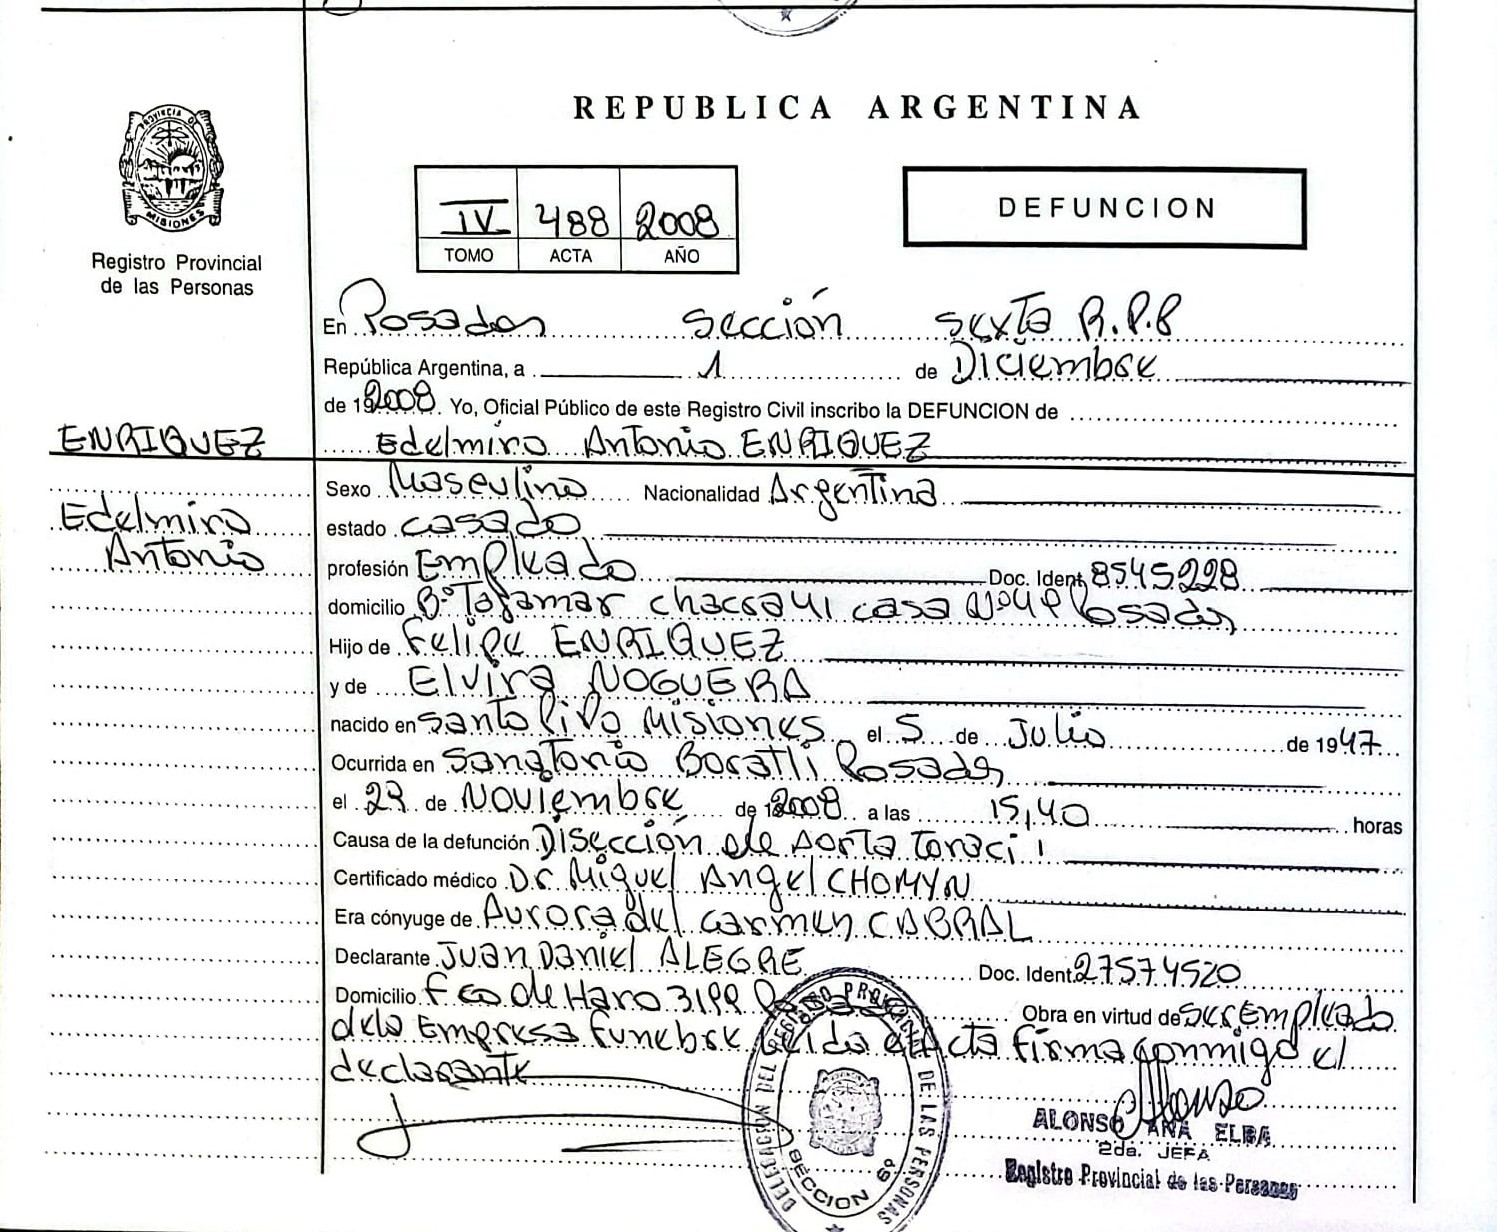 REPUBLICA ARGENTINA
PROVINCIA DE
MISIONES
Registro Provincial
de las Personas
IV 488 2008
TOMO ACTA AÑO
DEFUNCION
En Posadas Sección Sexta R.P.P
República Argentina, a 1 de Diciembre
de 19 2008. Yo, Oficial Público de este Registro Civil inscribo la DEFUNCION de
ENRIQUEZ
Edelmiro Antonio ENRIQUEZ
Sexo Masculino Nacionalidad Argentina
Edelmiro
estado casado
Antonio
profesión Empleado Doc. Ident. 8545228
domicilio Bº Tajamar chacra 41 casa Posadas
Hijo de Felipe ENRIQUEZ
y de Elvira NOGUERA
nacido en Santo Pipo Misiones el 5 de Julio de 1947
Ocurrida en Sanatorio Boratti Posadas
el de Noviembre de 2008 a las 15,40 horas
Causa de la defunción Disección de Aorta
Certificado médico Dr Miguel Angel CHOMYN
Era cónyuge de Aurora del Carmen CABRAL
Declarante Juan Daniel ALEGRE Doc. Ident. 27574520
Domicilio Fco de Haro 3199 Posadas Obra en virtud de ser Empleado
dela Empresa funebre Leida el Acta firma conmigo el
declarante
DELEGACION DEL REGISTRO PROVINCIAL DE LAS PERSONAS
SECCION 6º
ALONSO ANA ELBA
2da. JEFA
Registro Provincial de las Personas